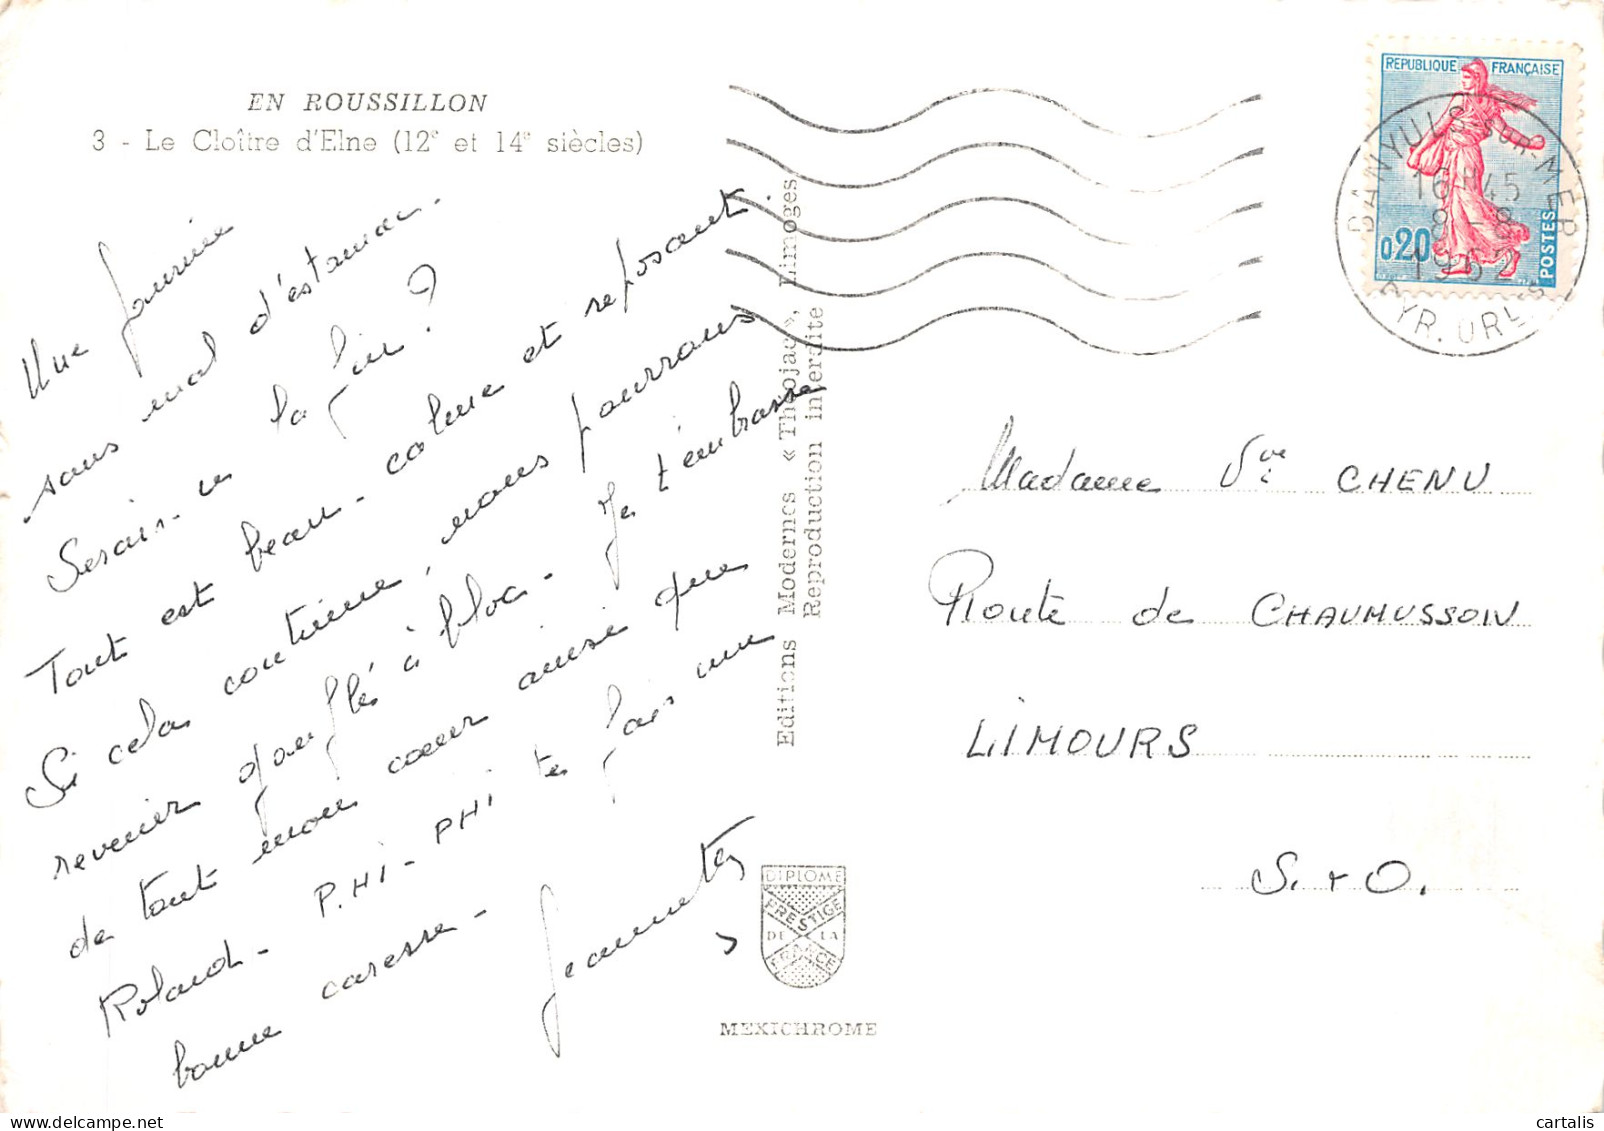 EN ROUSSILLON
3 - Le Cloître d'Elne (12e et 14e siècles)
Une journée
sans mal d'estomac.
Serais-ce la fin ?
Tout est beau - calme et reposant.
Si cela continue, nous pourrons
revenir gonflés à bloc - Je t'embrasse
de tout mon cœur ainsi que
Roland - PHI-PHI te fais une
bonne caresse -
Jeannette
Editions Modernes « Théojac », Limoges
Reproduction interdite
DIPLOME
PRESTIGE
DE LA
FRANCE
MEXICHROME
REPUBLIQUE FRANÇAISE
0,20
POSTES
BANYULS-SUR-MER
16H45
8 - 8
1962
PYR. ORLES
Madame Vve CHENU
Route de CHAUMUSSON
LIMOURS
S. & O.
cartalis